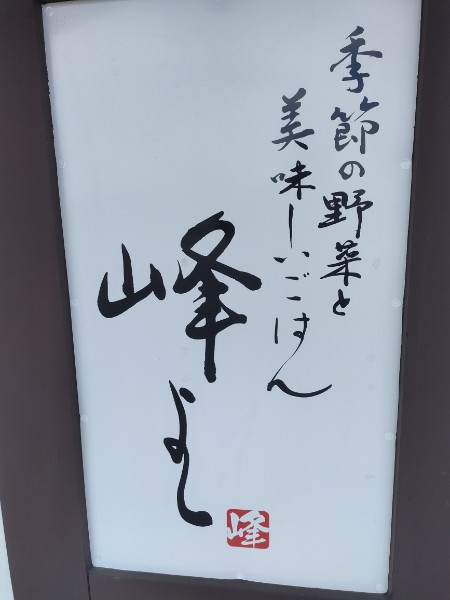 季節の野菜と
美味しいごはん
峰よし
峰